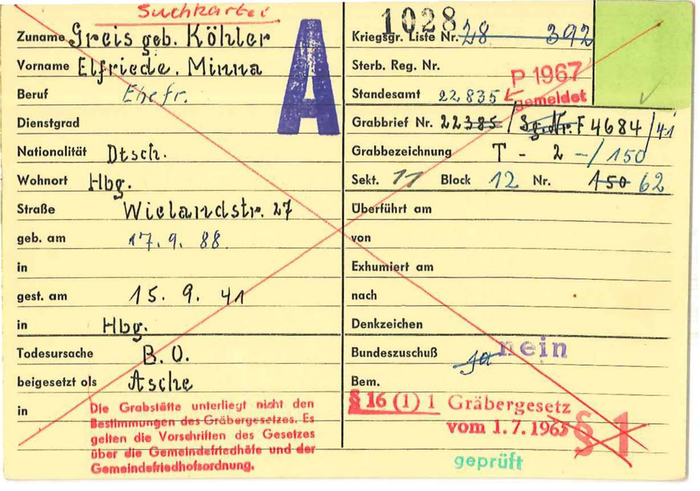 Suchkartei
A
Zuname Greis geb. Köhler
Vorname Elfriede. Minna
Beruf Ehefr.
Dienstgrad
Nationalität Dtsch.
Wohnort Hbg.
Straße Wielandstr. 27
geb. am 17. 9. 88.
in
gest. am 15. 9. 41
in Hbg.
Todesursache B. O.
beigesetzt als Asche
in
Die Grabstätte unterliegt nicht den
Bestimmungen des Gräbergesetzes. Es
gelten die Vorschriften des Gesetzes
über die Gemeindefriedhöfe und der
Gemeindefriedhofsordnung.
1028
Kriegsgr. Liste Nr. 28 392
Sterb. Reg. Nr.
P 1967
gemeldet
Standesamt 22835
Grabbrief Nr. 22385 / Sg. Nr. F 4684/41
Grabbezeichnung T - 2 -/150
Sekt. 11 Block 12 Nr. 150 62
Überführt am
von
Exhumiert am
nach
Denkzeichen
Bundeszuschuß ja nein
Bem.
§ 16 (1) 1 Gräbergesetz
vom 1. 7. 1965
§ 1
geprüft